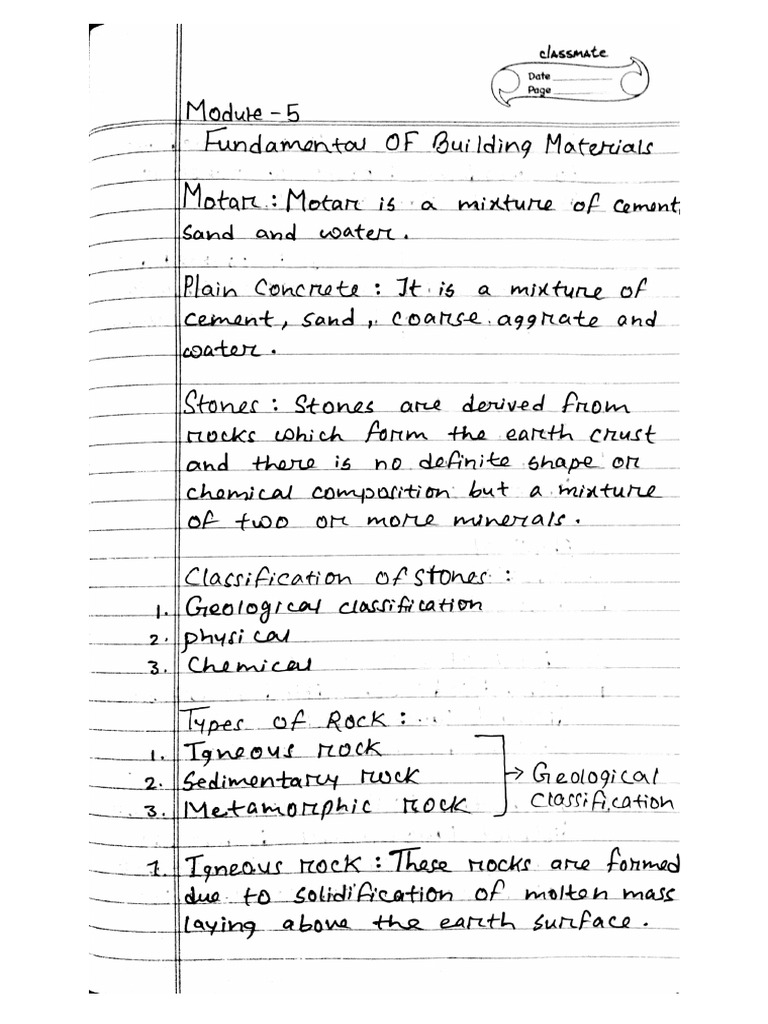 classmate
Date
Page
Module - 5
Fundamental OF Building Materials
Motar : Motar is a mixture of cement,
sand and water.
Plain Concrete : It is a mixture of
cement, sand, coarse aggrate and
water.
Stones : Stones are derived from
rocks which form the earth crust
and there is no definite shape or
chemical composition but a mixture
of two or more minerals.
Classification of stones :
1. Geological classification
2. physical
3. Chemical
Types of Rock :
1. Igneous rock
2. Sedimentary rock → Geological
3. Metamorphic rock classification
1. Igneous rock : These rocks are formed
due to solidification of molten mass
laying above the earth surface.